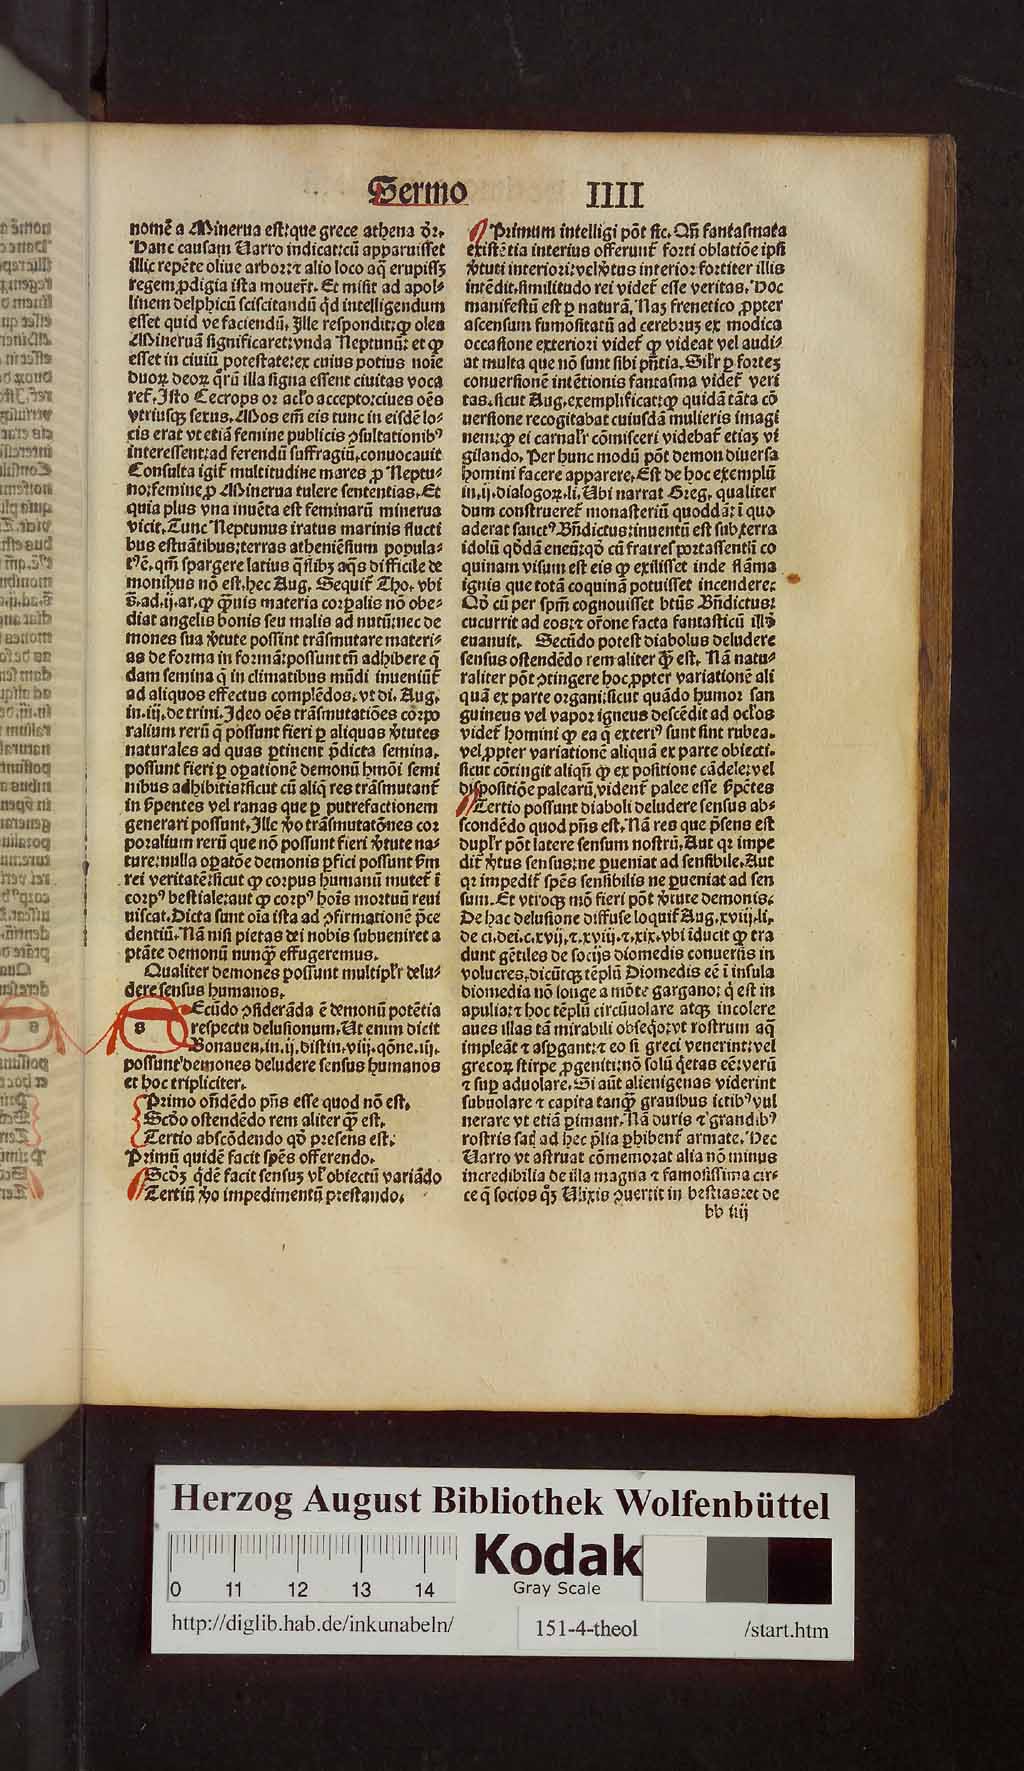 Sermo IIII
nomē a Minerua est: que grece athena dr̄.
Hanc causam Uarro indicat: cū apparuisset
illic repēte oliue arbor: ⁊ alio loco aq̄ erupissꝫ
regem ꝓdigia ista mouerūt. Et misit ad apol⸗
linem delphicū sciscitandū qd intelligendum
esset quid ve faciendū. Ille respondit: ꝙ olea
Mineruā significaret: vnda Neptunū: et ꝙ
esset in ciuiū potestate: ex cuius potius noīe
duoꝝ deoꝝ qͦrū illa signa essent ciuitas voca
ret̄. Isto Cecrops oraclo accepto: ciues oēs
vtriusqꝫ sexus. Mos em̄ eis tunc in eisdē lo⸗
cis erat vt etiā femine publicis ꝯsultationibꝰ
interessent: ad ferendū suffragiū, conuocauit
Consulta igit̄ multitudine mares ꝓ Neptu⸗
no: femine ꝓ Minerua tulere sententias. Et
quia plus vna inuēta est feminarū minerua
vicit. Tunc Neptunus iratus marinis flucti
bus estuātibus: terras atheniēsium popula⸗
tꝰ ē. qm̄ spargere latius q̄slibꝫ aq̄s difficile de
monibus nō est. hec Aug. Sequit̄ Tho. vbi
s̄. ad .ij. ar. ꝙ q̄uis materia corꝑalis nō obe⸗
diat angelis bonis seu malis ad nutū: nec de
mones sua v̓tute possint trāsmutare materi⸗
as de forma in formā: possunt tn̄ adhibere q̄
dam semina q̄ in climatibus mūdi inueniūt̄
ad aliquos effectus complēdos. vt di. Aug.
in .iij. de trini. Ideo oēs trāsmutatiōes corpo
ralium rerū q̄ possunt fieri ꝑ aliquas v̓tutes
naturales ad quas ꝑtinent p̄dicta semina.
possunt fieri ꝑ oꝑationē demonū hm̄ōi semi
nibus adhibitis: sicut cū aliq̄ res trāsmutant̄
in s̓pentes vel ranas que ꝑ putrefactionem
generari possunt. Ille v̓o trāsmutatōnes cor
poralium rerū que nō possunt fieri v̓tute na⸗
ture: nulla oꝑatōe demonis ꝑfici possunt s̓m
rei veritatē: sicut ꝙ corpus humanū mutet̄ ī
corpꝰ bestiale: aut ꝙ corpꝰ hoīs mortuū reui
uiscat. Dicta sunt oīa ista ad ꝯfirmationē p̄ce
dentiū. Nā nisi pietas dei nobis subueniret a
ptāte demonū nunq̄ effugeremus.
Qualiter demones possunt multiplr̄ delu⸗
dere sensus humanos.
s Ecūdo ꝯsiderāda ē demonū potētia
respectu delusionum. Ut enim dicit
Bonauen. in .ij. distin. viij. qōne. iij.
possunt demones deludere sensus humanos
et hoc tripliciter.
Primo on̄dēdo pn̄s esse quod nō est.
Scdo ostendēdo rem aliter q̄ est.
Tertio abscōdendo qd̄ presens est.
Primū quidē facit spēs offerendo.
Scdꝫ qdē facit sensuꝫ vl̓ obiectū variādo
Tertiū v̓o impedimentū prestando.
Primum intelligi pōt sic. Qn̄ fantasmata
existētia interius offerunt̄ forti oblatiōe ipsi
v̓tuti interiori: vel v̓tus interior fortiter illis
intēdit. similitudo rei videt̄ esse veritas. Hoc
manifestū est ꝑ naturā. Naꝫ frenetico ꝓpter
ascensum fumositatū ad cerebruꝫ ex modica
occasione exteriori videt̄ ꝙ videat vel audi⸗
at multa que nō sunt sibi pn̄tia. Silr̄ ꝑ forteꝫ
conuersionē intētionis fantasma videt̄ veri
tas. sicut Aug. exemplificat: ꝙ quidā tāta cō
uersione recogitabat cuiusdā mulieris imagi
nem: ꝙ ei carnalr̄ cōmisceri videbat̄ etiaꝫ vi
gilando. Per hunc modū pōt demon diuersa
homini facere apparere. Est de hoc exemplū
in .ij. dialogoꝝ. li. Ubi narrat Greg. qualiter
dum construeret̄ monasteriū quoddā: ī quo
aderat sanctꝰ Bn̄dictus: inuentū est sub terra
idolū qddā eneū: qd̄ cū fratres portassent in co
quinam visum est eis ꝙ exilisset inde flāma
ignis que totā coquinā potuisset incendere.
Qd̄ cū per spm̄ cognouisset btūs Bn̄dictus:
cucurrit ad eos: ⁊ or̄one facta fantasticū illd̓
euanuit. Secūdo potest diabolus deludere
sensus ostendēdo rem aliter q̄ est. Nā natu⸗
raliter pōt ꝯtingere hoc ꝓpter variationē ali
quā ex parte organi: sicut quādo humor san
guineus vel vapor igneus descēdit ad oclos
videt̄ homini ꝙ ea q̄ exteriꝰ sunt sint rubea.
vel ꝓpter variationē aliquā ex parte obiecti.
sicut cōtingit aliqn̄ ꝙ ex positione cādele: vel
dispositiōe palearū, vident̄ palee esse s̓pētes
Tertio possunt diaboli deludere sensus abs⸗
scondēdo quod pn̄s est. Nā res que p̄sens est
duplr̄ pōt latere sensum nostrū. Aut qꝛ impe
dit̄ v̓tus sensus: ne ꝑueniat ad sensibile. Aut
qꝛ impedit̄ spēs sensibilis ne ꝑueniat ad sen
sum. Et vtroqꝫ mō fieri pōt v̓tute demonis.
De hac delusione diffuse loquit̄ Aug. xviij. li.
de ci. dei. c. xvij. ⁊. xviij. ⁊. xix. vbi īducit ꝙ tra
dunt gētiles de socijs diomedis conuersis in
volucres. dicūtqꝫ tēplū Diomedis eē ī insula
diomedia nō longe a mōte gargano: q̄ est in
apulia: ⁊ hoc tēplū circūuolare atqꝫ incolere
aues illas tā mirabili obseqͦ: vt rostrum aq̄
impleāt ⁊ asꝑgant: ⁊ eo si greci venerint: vel
grecoꝝ stirpe ꝓgeniti: nō solū qͥetas eē: verū
⁊ suꝑ aduolare. Si aūt alienigenas viderint
subuolare ⁊ capita tanq̄ grauibus ictibꝰ vul
nerare vt etiā ꝑimant. Nā duris ⁊ grandibꝰ
rostris satꝭ ad hec p̄lia ꝑhibent̄ armate. Hec
Uarro vt astruat cōmemorat alia nō minus
incredibilia de illa magna ⁊ famosissima cir⸗
ce q̄ socios qꝫ Ulixis ꝯuertit in bestias: et de
bb iiij
Herzog August Bibliothek Wolfenbüttel
0 11 12 13 14
Kodak
Gray Scale
http://diglib.hab.de/inkunabeln/ 151-4-theol /start.htm